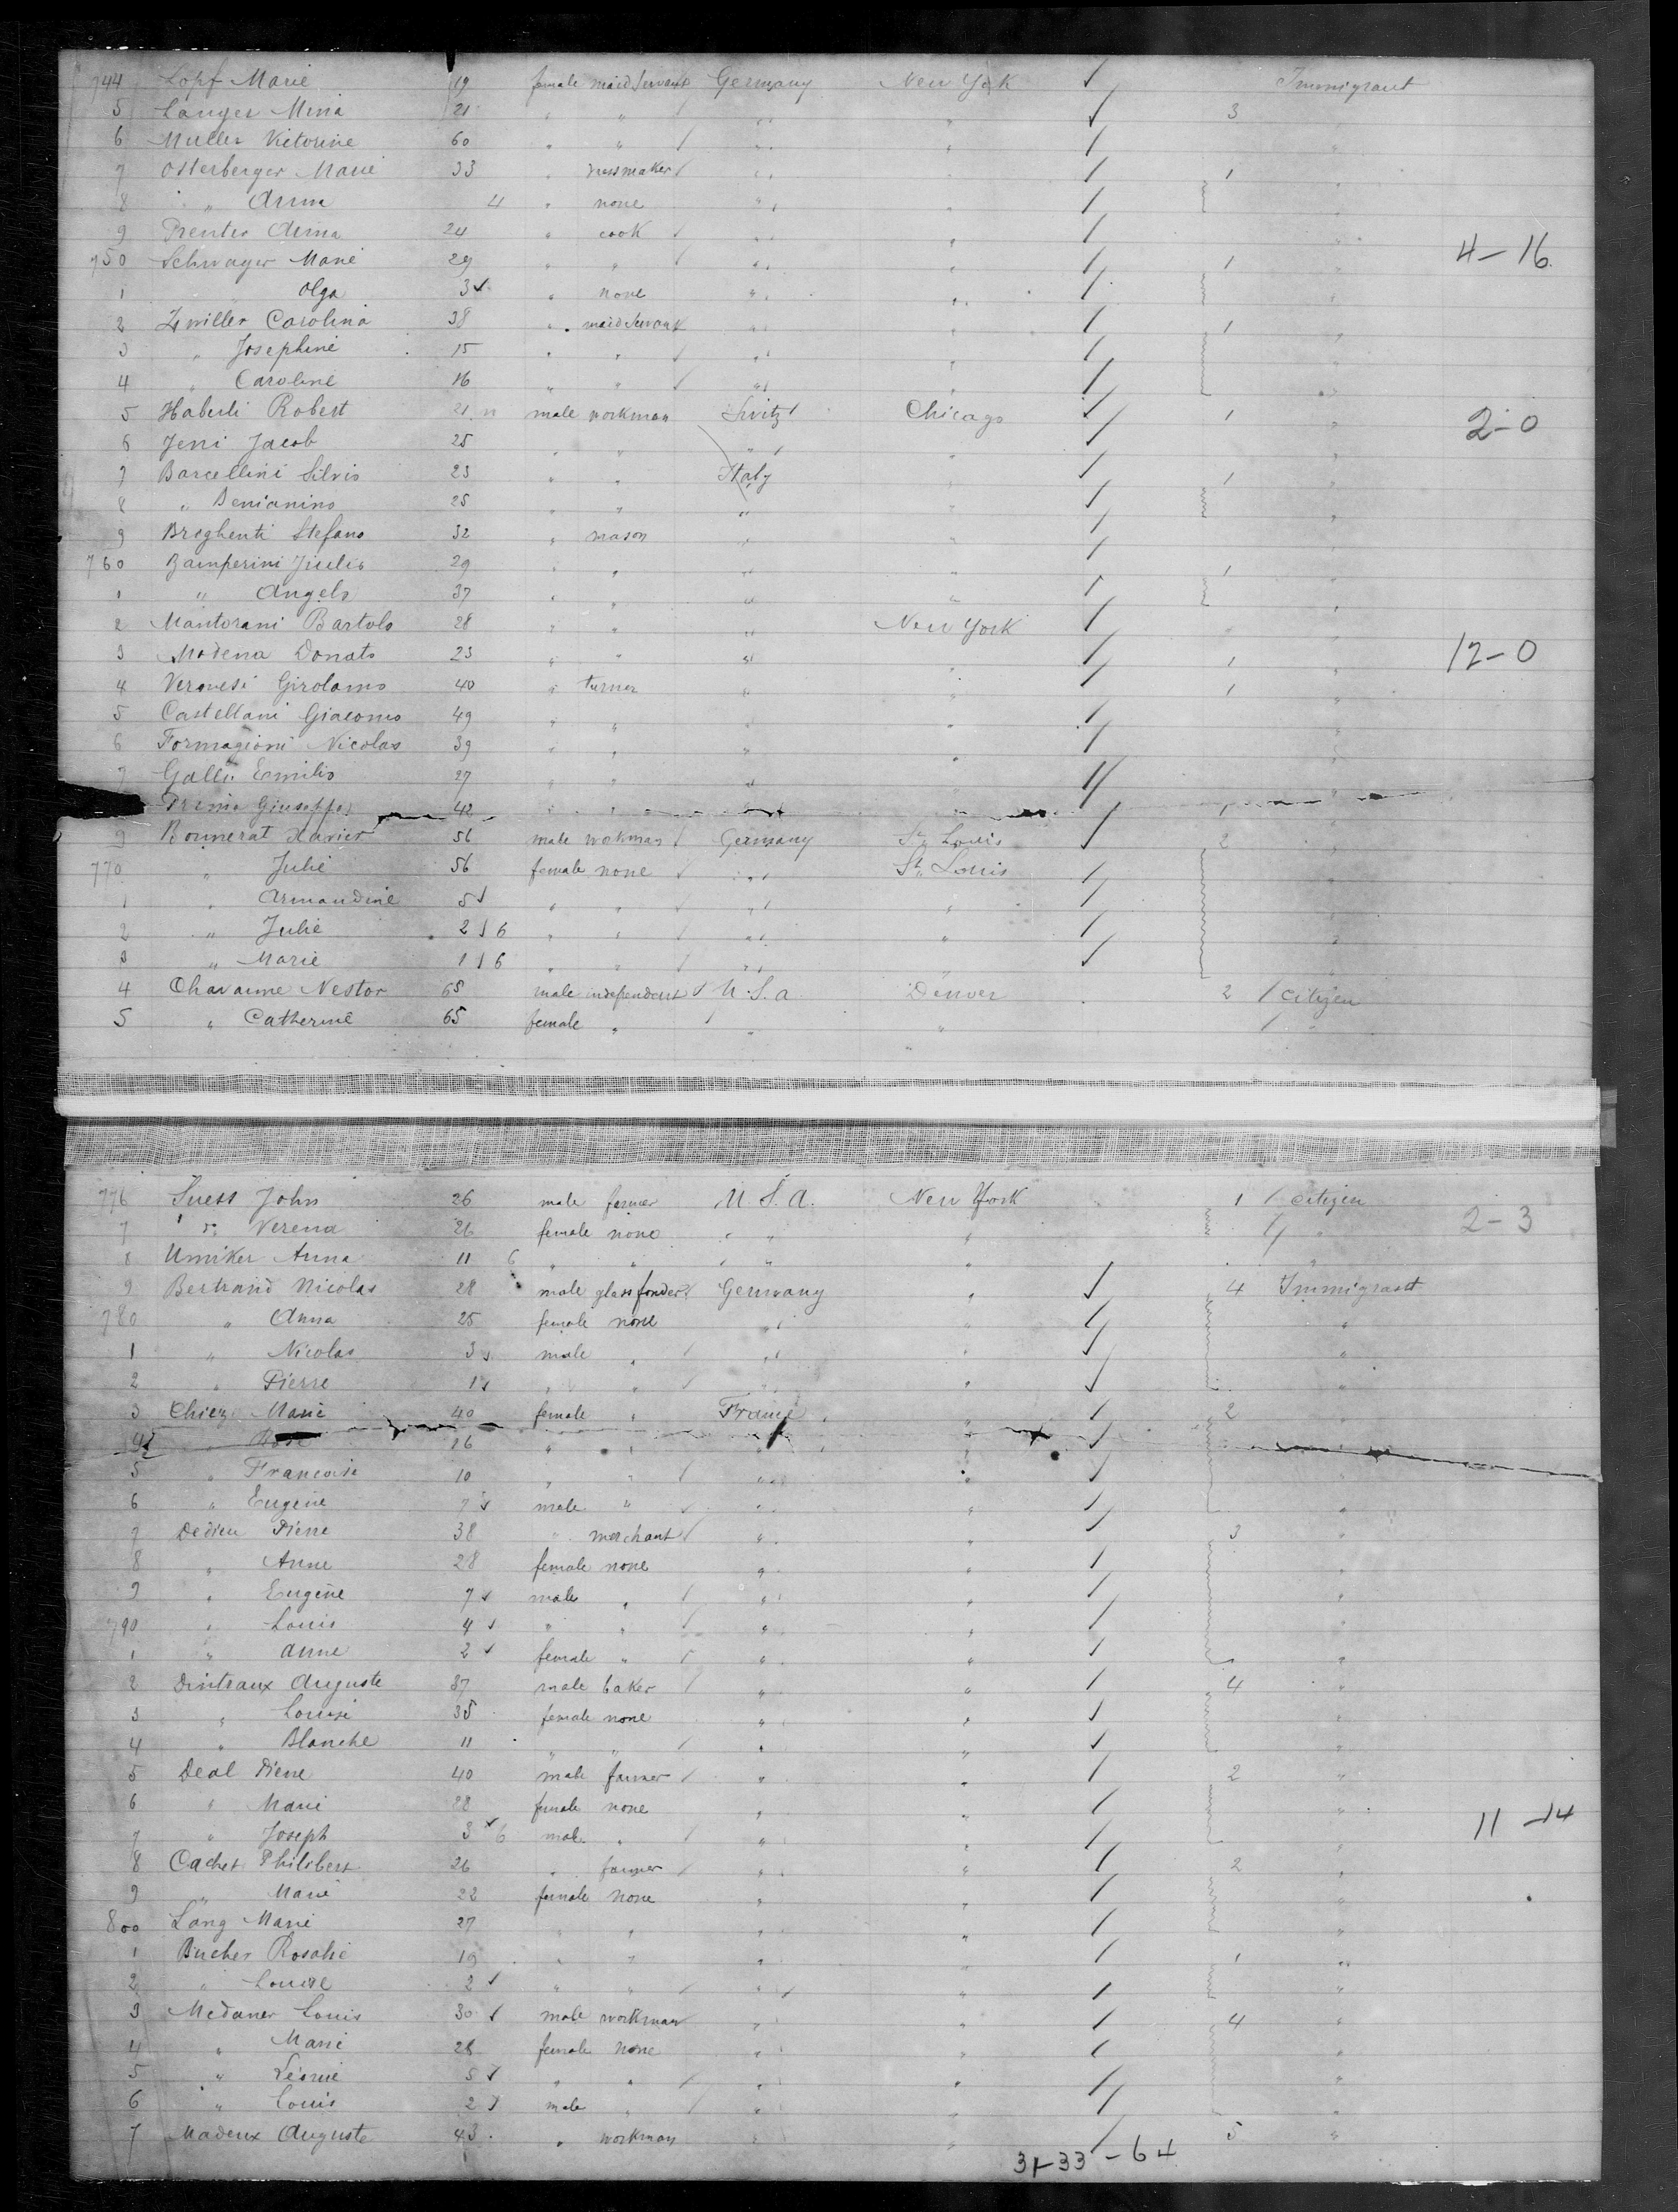 744 Lopf Marie 19 female maid Servant Germany New York Immigrant
5 Langer Mina 21 " " " " 3 "
6 Muller Victorine 60 " " " " "
7 Osterberger Marie 33 " dressmaker " " 1 "
8 " Anna 4 " none " " "
9 Prenter Anna 24 " cook " " "
4-16.
750 Schwager Marie 29 " " " " 1 "
1 " Olga 3 " none " " "
2 Zwiller Carolina 38 " maid Servant " " 1 "
3 " Josephine 15 " " " " "
4 " Caroline 16 " " " " "
5 Haberli Robert 21 male workman Switz Chicago 1 " 2-0
6 Jeni Jacob 25 " " " " "
7 Barcellini Silvio 23 " " Italy " 1 "
8 " Benianino 25 " " " " "
9 Breghenti Stefano 32 " mason " " "
760 Zamperini Giulio 29 " " " " 1 "
1 " Angelo 37 " " " " "
2 Mantovani Bartolo 28 " " " New York "
3 Modena Donato 23 " " " " 1 " 12-0
4 Veronesi Girolamo 40 " turner " " 1 "
5 Castellani Giacomo 49 " " " " "
6 Formagioni Nicolas 39 " " " " "
7 Galli Emilio 27 " " " " "
Giuseppe 42 " " " " 1 "
9 Bonnerat Xavier 56 male workman Germany St Louis 2 "
770 " Julie 56 female none " St Louis "
1 " Armandine 5 " " " " "
2 " Julie 2 6 " " " " "
3 " Marie 1 6 " " " " "
4 Chavanne Nestor 65 male independent U.S.a Denver 2 citizen
5 " Catherine 65 female " " " "
776 Suess John 26 male farmer U.S.A. New York 1 citizen
7 " Verena 26 female none " " " 2-3
8 Umiker Anna 11 6 " " " " "
9 Bertrand Nicolas 28 male glassfonder Germany " 4 Immigrant
780 " Anna 25 female none " " "
1 " Nicolas 3 male " " " "
2 " Pierre 1 " " " " "
3 Chieze Marie 40 female " France " 2 "
4 " Rose 16 " " " " "
5 " Francoise 10 " " " " "
6 " Eugene 7 male " " " "
7 Dedieu Pierre 38 " merchant " " 3 "
8 " Anne 28 female none " " "
9 " Eugene 7 male " " " "
790 " Louis 4 " " " " "
1 " Anne 2 female " " " "
2 Dintraux Auguste 37 male baker " " 4 "
3 " Louise 35 female none " " "
4 " Blanche 11 " " " " "
5 Deal Pierre 40 male farmer " " 2 "
6 " Marie 28 female none " " "
7 " Joseph 3 6 male " " " " 11-14
8 Cachet Philibert 26 " farmer " " 2 "
9 " Marie 22 female none " " "
800 Lang Marie 27 " " " " "
1 Bucher Rosalie 19 " " " " 1 "
2 " Louise 2 " " " " "
3 Medaner Louis 30 male workman " " 4 "
4 " Marie 28 female none " " "
5 " Léonie 5 " " " " "
6 " Louis 2 male " " " "
7 Madeux Auguste 43 " workman " " 5 "
31-33-64